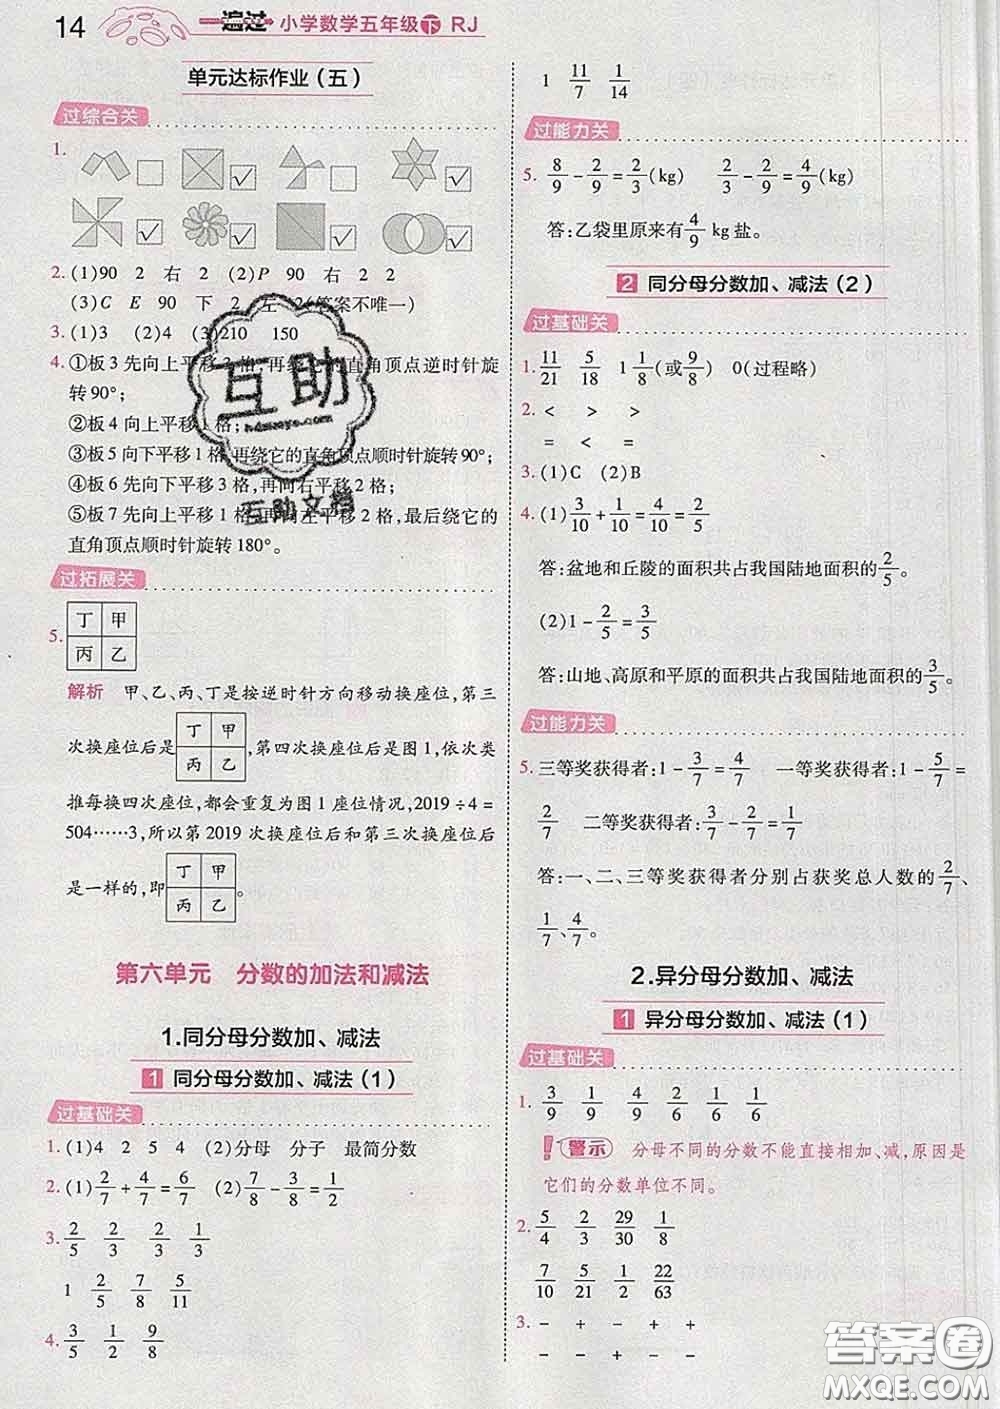 14 一遍过 小学数学五年级下 RJ
单元达标作业(五)
过综合关
1.
2. (1)90 2 右 2 (2)P 90 右 2 2
(3)C E 90 下 2 左 2(答案不唯一)
3. (1)3 (2)4 (3)210 150
4. ①板3先向上平移3格,再绕它的直角顶点逆时针旋
转90°;
②板4向上平移1格;
③板5向下平移1格,再绕它的直角顶点顺时针旋转90°;
④板6先向下平移3格,再向右平移2格;
⑤板7先向上平移1格,再向左平移2格,最后绕它的
直角顶点顺时针旋转180°。
过拓展关
5. 丁 甲
丙 乙
解析 甲、乙、丙、丁是按逆时针方向移动换座位,第三
次换座位后是 丁 甲 丙 乙 ,第四次换座位后是图1,依次类
推每换四次座位,都会重复为图1座位情况,2019÷4=
504……3,所以第2019次换座位后和第三次换座位后
是一样的,即 丁 甲 丙 乙 。
第六单元 分数的加法和减法
1.同分母分数加、减法
1 同分母分数加、减法(1)
过基础关
1. (1)4 2 5 4 (2)分母 分子 最简分数
2. (1)2/7+4/7=6/7 (2)7/8-3/8=1/2
3. 2/5 2/3 2/3 1/3
1 2/5 7/8 5/11
4. 3/5 1/2 9/8
1 11/7 1/14
过能力关
5. 8/9-2/9=2/3(kg) 2/3-2/9=4/9(kg)
答:乙袋里原来有4/9 kg盐。
2 同分母分数加、减法(2)
过基础关
1. 11/21 5/18 1 1/8(或9/8) 0(过程略)
2. < > >
= < =
3. (1)C (2)B
4. (1)3/10+1/10=4/10=2/5
答:盆地和丘陵的面积共占我国陆地面积的2/5。
(2)1-2/5=3/5
答:山地、高原和平原的面积共占我国陆地面积的3/5。
过能力关
5. 三等奖获得者:1-3/7=4/7 一等奖获得者:1-5/7=
2/7 二等奖获得者:3/7-2/7=1/7
答:一、二、三等奖获得者分别占获奖总人数的2/7、
1/7、4/7。
2.异分母分数加、减法
1 异分母分数加、减法(1)
过基础关
1. 3/9 1/9 4/9 2/6 1/6 1/6
警示 分母不同的分数不能直接相加、减,原因是
它们的分数单位不同。
2. 5/4 2/3 29/30 1/8
7/10 5/21 1/2 22/63
3. - + - + +
- - - + -
互助
hdzuoye.com
互助文档
答案圈
MXQE.COM